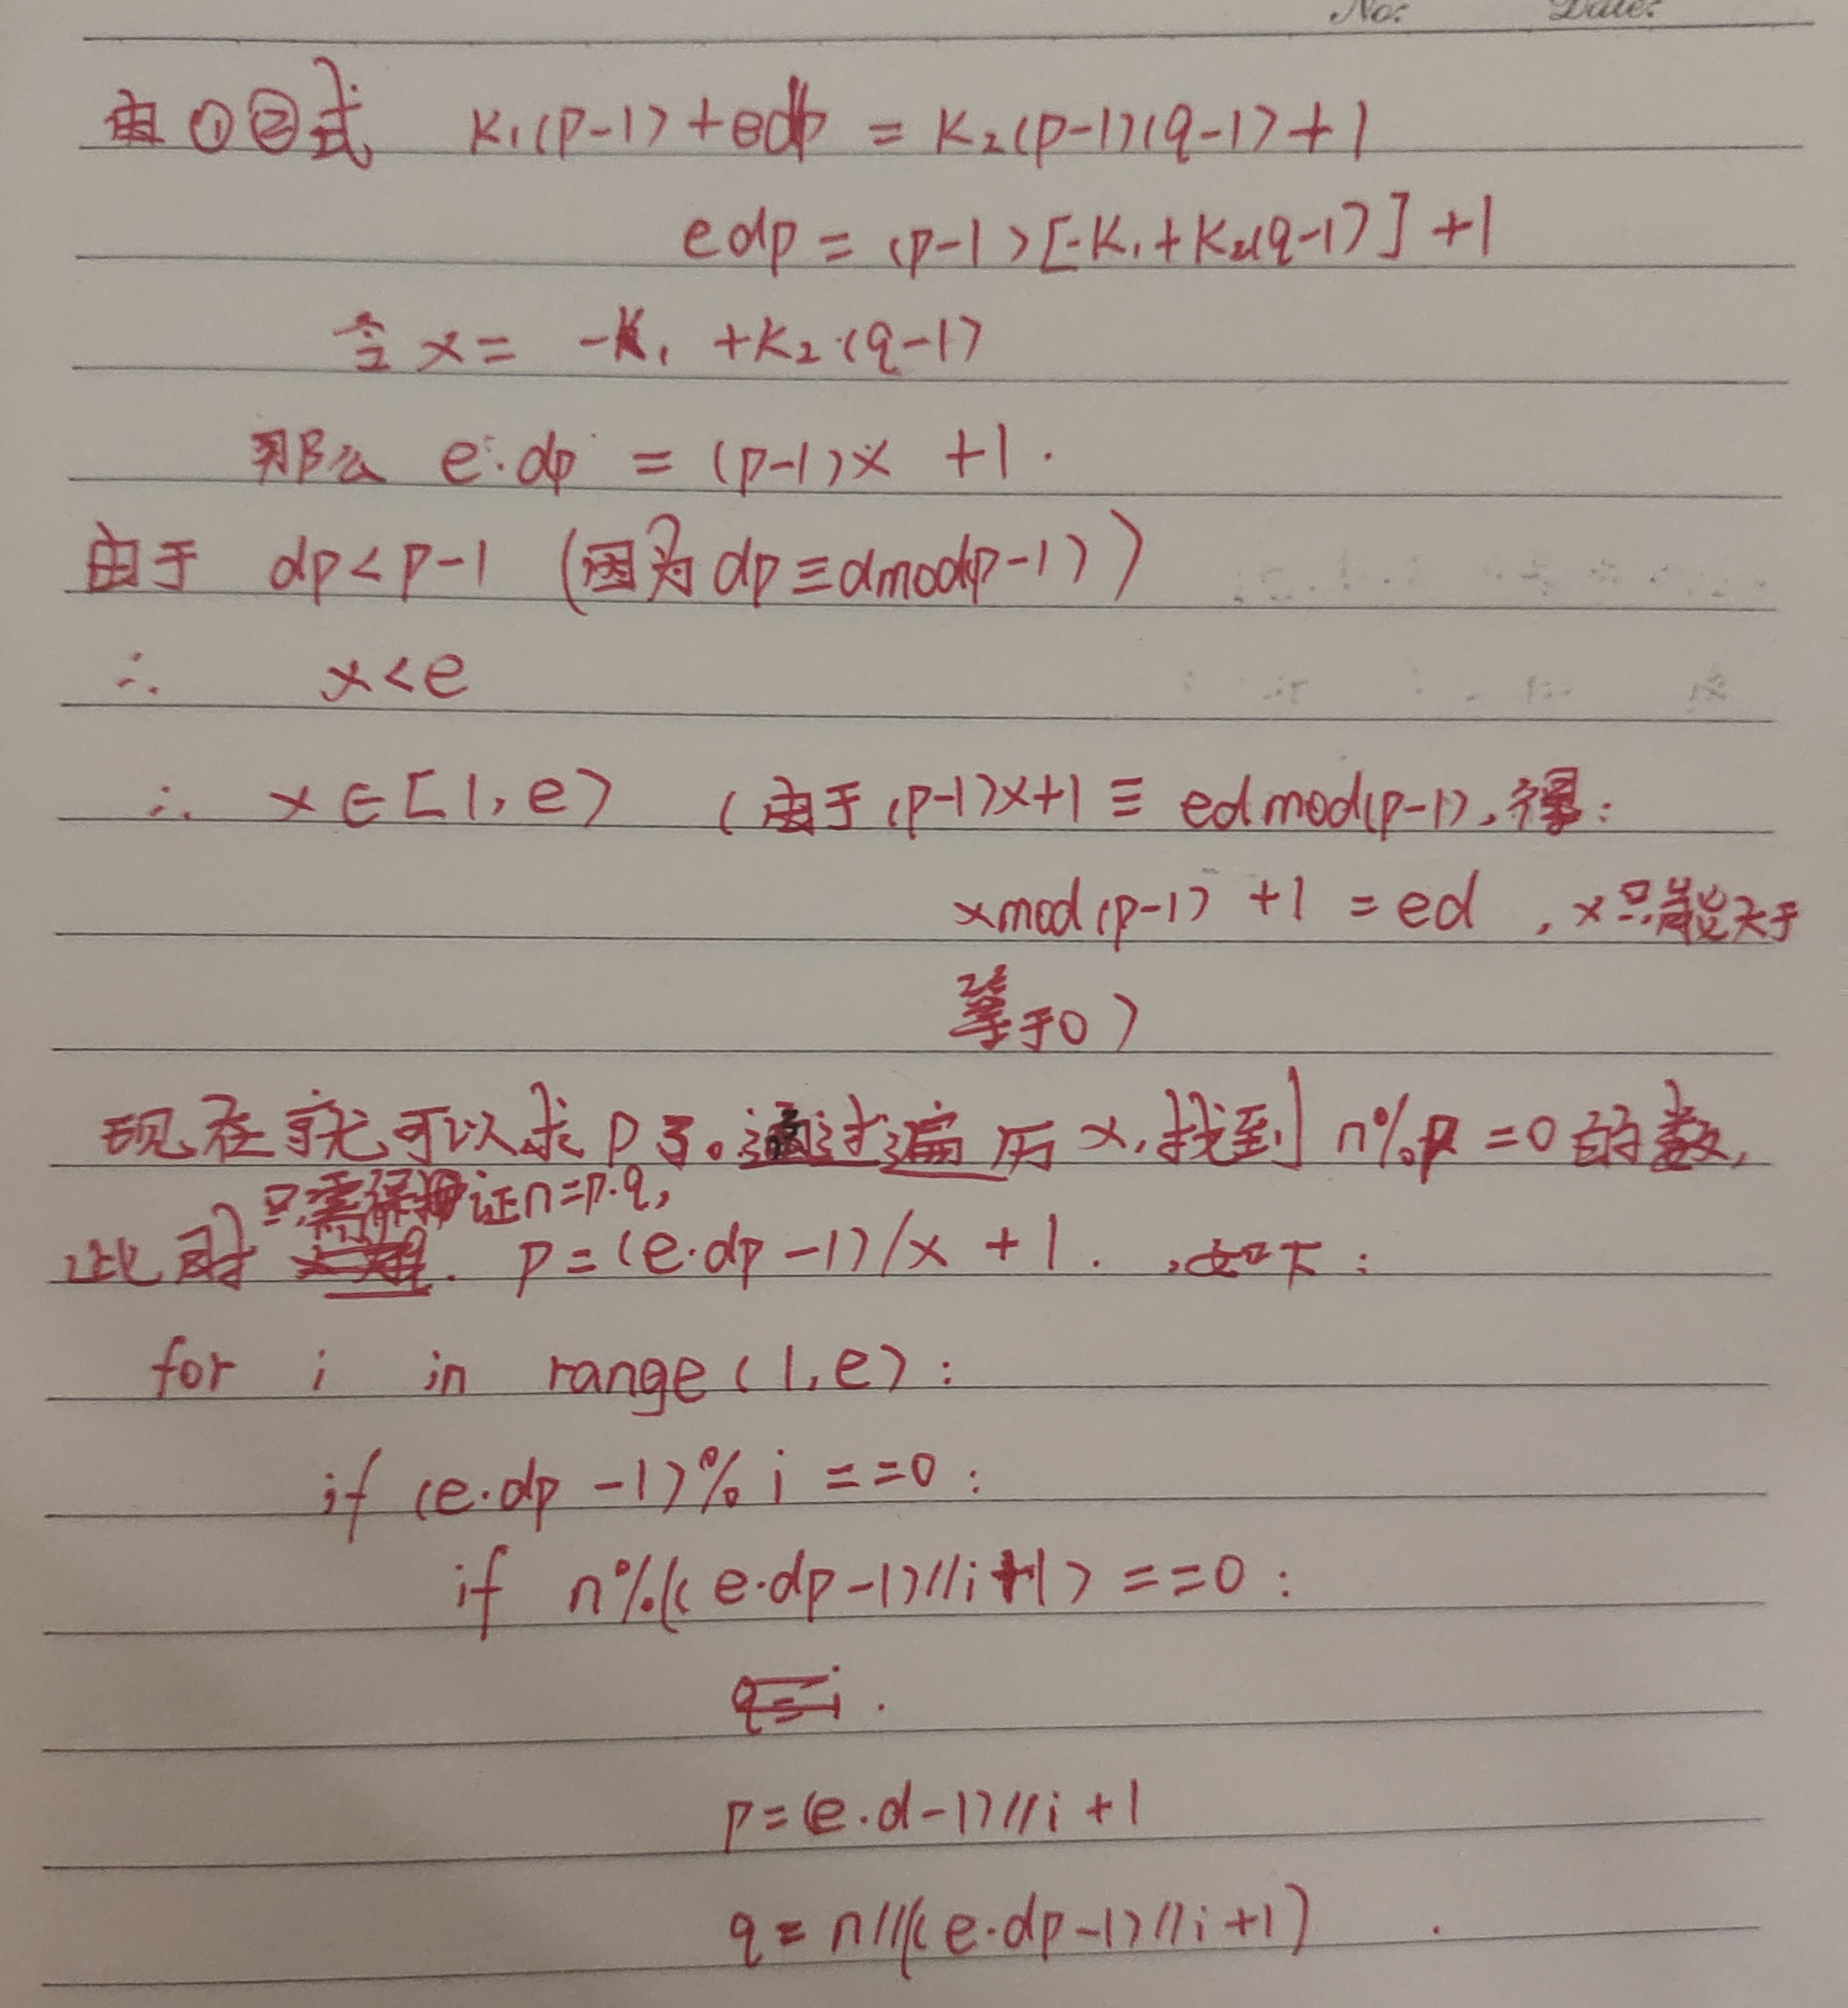 No: Date:
由①②式 K₁(p-1)+edp = K₂(p-1)(q-1)+1
edp = (p-1)[-K₁+K₂(q-1)]+1
令 x = -K₁ +K₂·(q-1)
那么 e·dp = (p-1)x +1.
由于 dp<p-1 (因为dp≡dmod(p-1))
∴ x<e
∴ x∈[1,e) (由于(p-1)x+1 ≡ edmod(p-1),得:
xmod(p-1) +1 = ed ,x只能大于
等于0)
现在就可以求p了。通过遍历x,找到n%p =0的数,
只需保证n=p·q,
此时 p=(e·dp-1)/x +1. ,如下:
for i in range(1,e):
if (e·dp -1)%i ==0:
if n%((e·dp-1)//i+1) ==0:
q=i.
p=(e·d-1)//i+1
q= n//((e·dp-1)//i+1) .